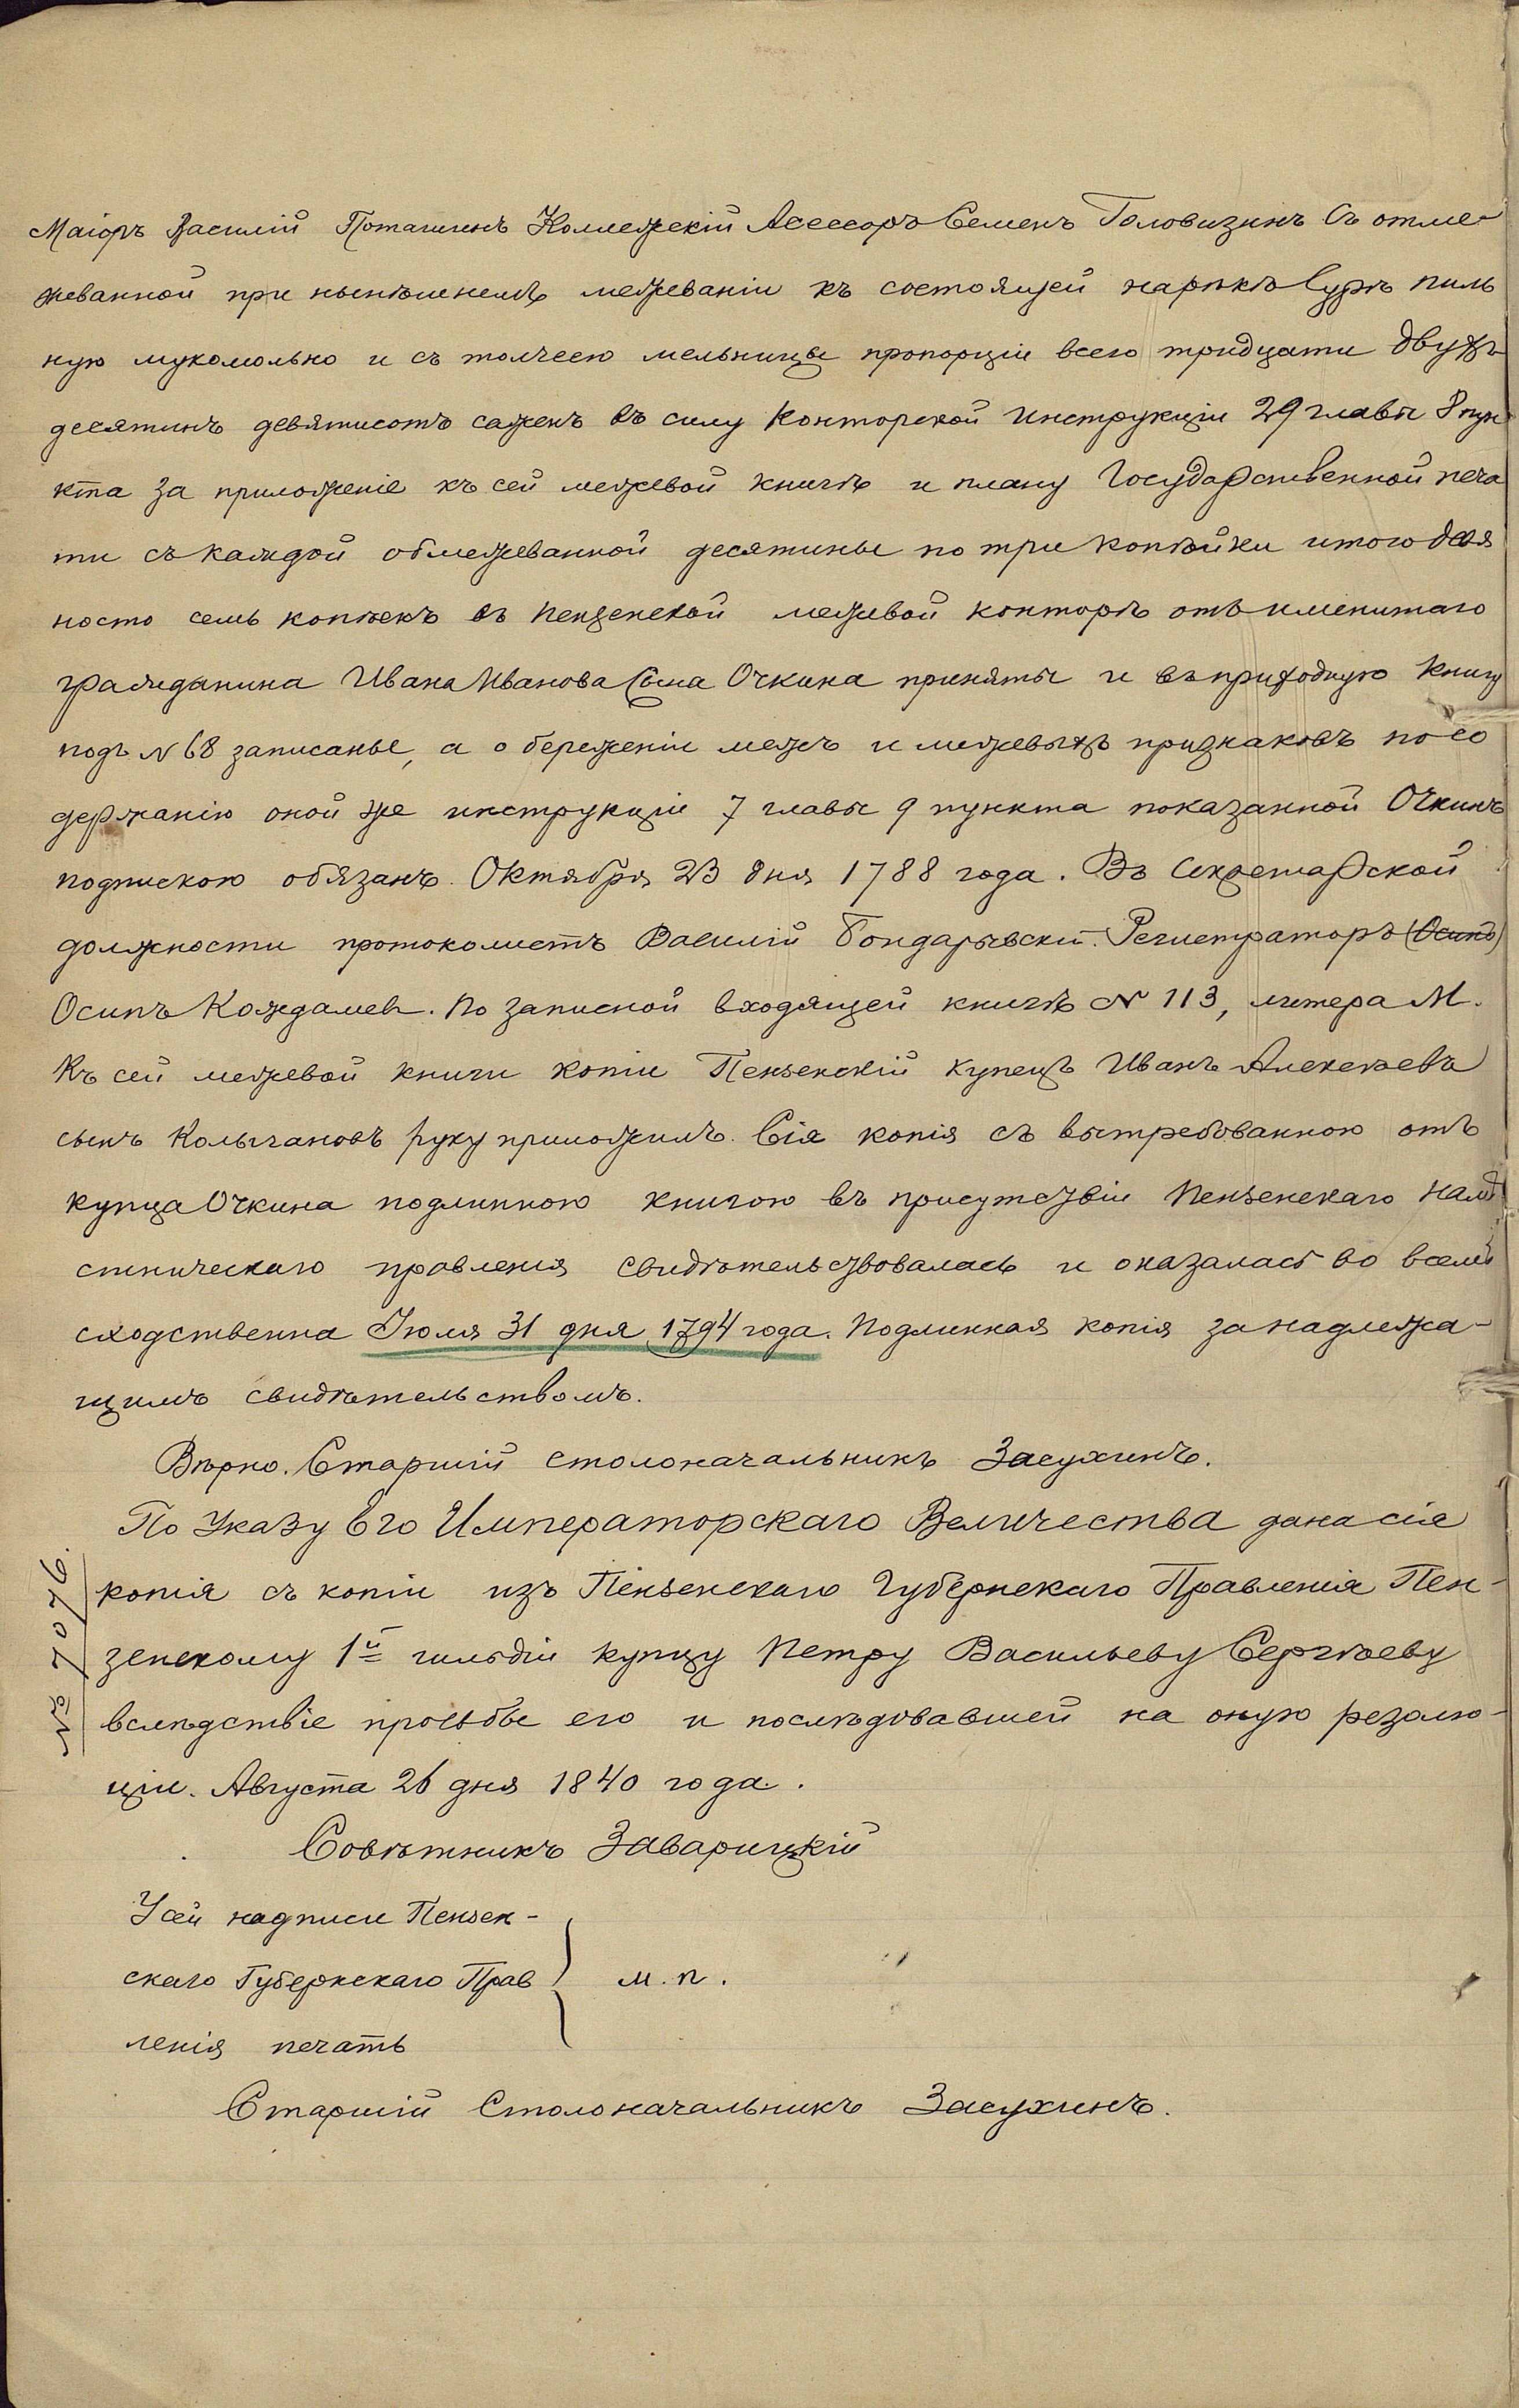 Маіоръ Василій Поташинъ Коллежскій Асессоръ Семенъ Головизинъ Съ отме-
жеванной при нынѣшнемъ межеваніи къ состоящей нарѣкѣ Сурѣ пиль
ную мукомольно и съ толчеею мельницы пропорціи всего тридцати двухъ
десятинъ девятисотъ саженъ въ силу Конторской Инструкціи 29 главы 8 пун
кта за приложеніе къ сей межевой книгѣ и плану Государственной печа
ти съ каждой обмежеванной десятины по три копѣйки итого девя
носто семь копѣекъ въ Пензенской межевой конторѣ отъ имянитаго
гражданина Ивана Иванова Сына Очкина приняты и въ приходную книгу
подъ N 68 записаные, а о береженіи межъ и межевыхъ признаковъ по со
держанію оной же инструкціи 7 главы 9 пункта показанной Очкинъ
подпискою обязанъ. Октября 23 дня 1788 года. Въ Секретарской
должности протоколистъ Василій Бондаревскій. Регистраторъ (Осипъ)
Осипъ Кождамев. По записной входящей книгѣ N 113, литера М.
Къ сей межевой книги копіи Пензенскій купецъ Иванъ Алексѣевъ
сынъ Колычановъ руку приложилъ. Сія копія съ вытребованною отъ
купца Очкина подлинною книгою въ присутствіи Пензенскаго намѣ
стническаго правленія свидѣтельствовалась и оказалась во всемъ
сходственна Іюля 31 дня 1794 года. Подлинная копія за надлежа-
щимъ свидѣтельствомъ.
Вѣрно. Старшій столоначальникъ Засухинъ.
По Указу Его Императорскаго Величества дана сія
копія съ копіи изъ Пензенскаго Губернскаго Правленія Пен-
зенскому 1й гильдіи купцу Петру Васильеву Сергѣеву
вслѣдствіе просьбы его и послѣдовавшей на оную резолю-
ціи. Августа 26 дня 1840 года.
№ 7076.
Совѣтникъ Заварицкій
У сей надписи Пензен-
скаго Губернскаго Прав
ленія печать
м. п.
Старшій Столоначальникъ Засухинъ.